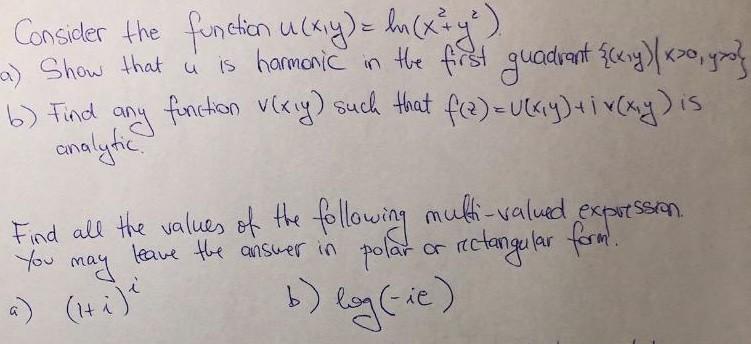 Consider the function u(x,y) = ln(x²+y²).
a) Show that u is harmonic in the first quadrant {(x,y)|x>0, y>0}
b) Find any function v(x,y) such that f(z) = u(x,y)+iv(x,y) is
analytic.
Find all the values of the following multi-valued expression.
You may leave the answer in polar or rectangular form.
a) (1+i)ⁱ b) log(-ie)